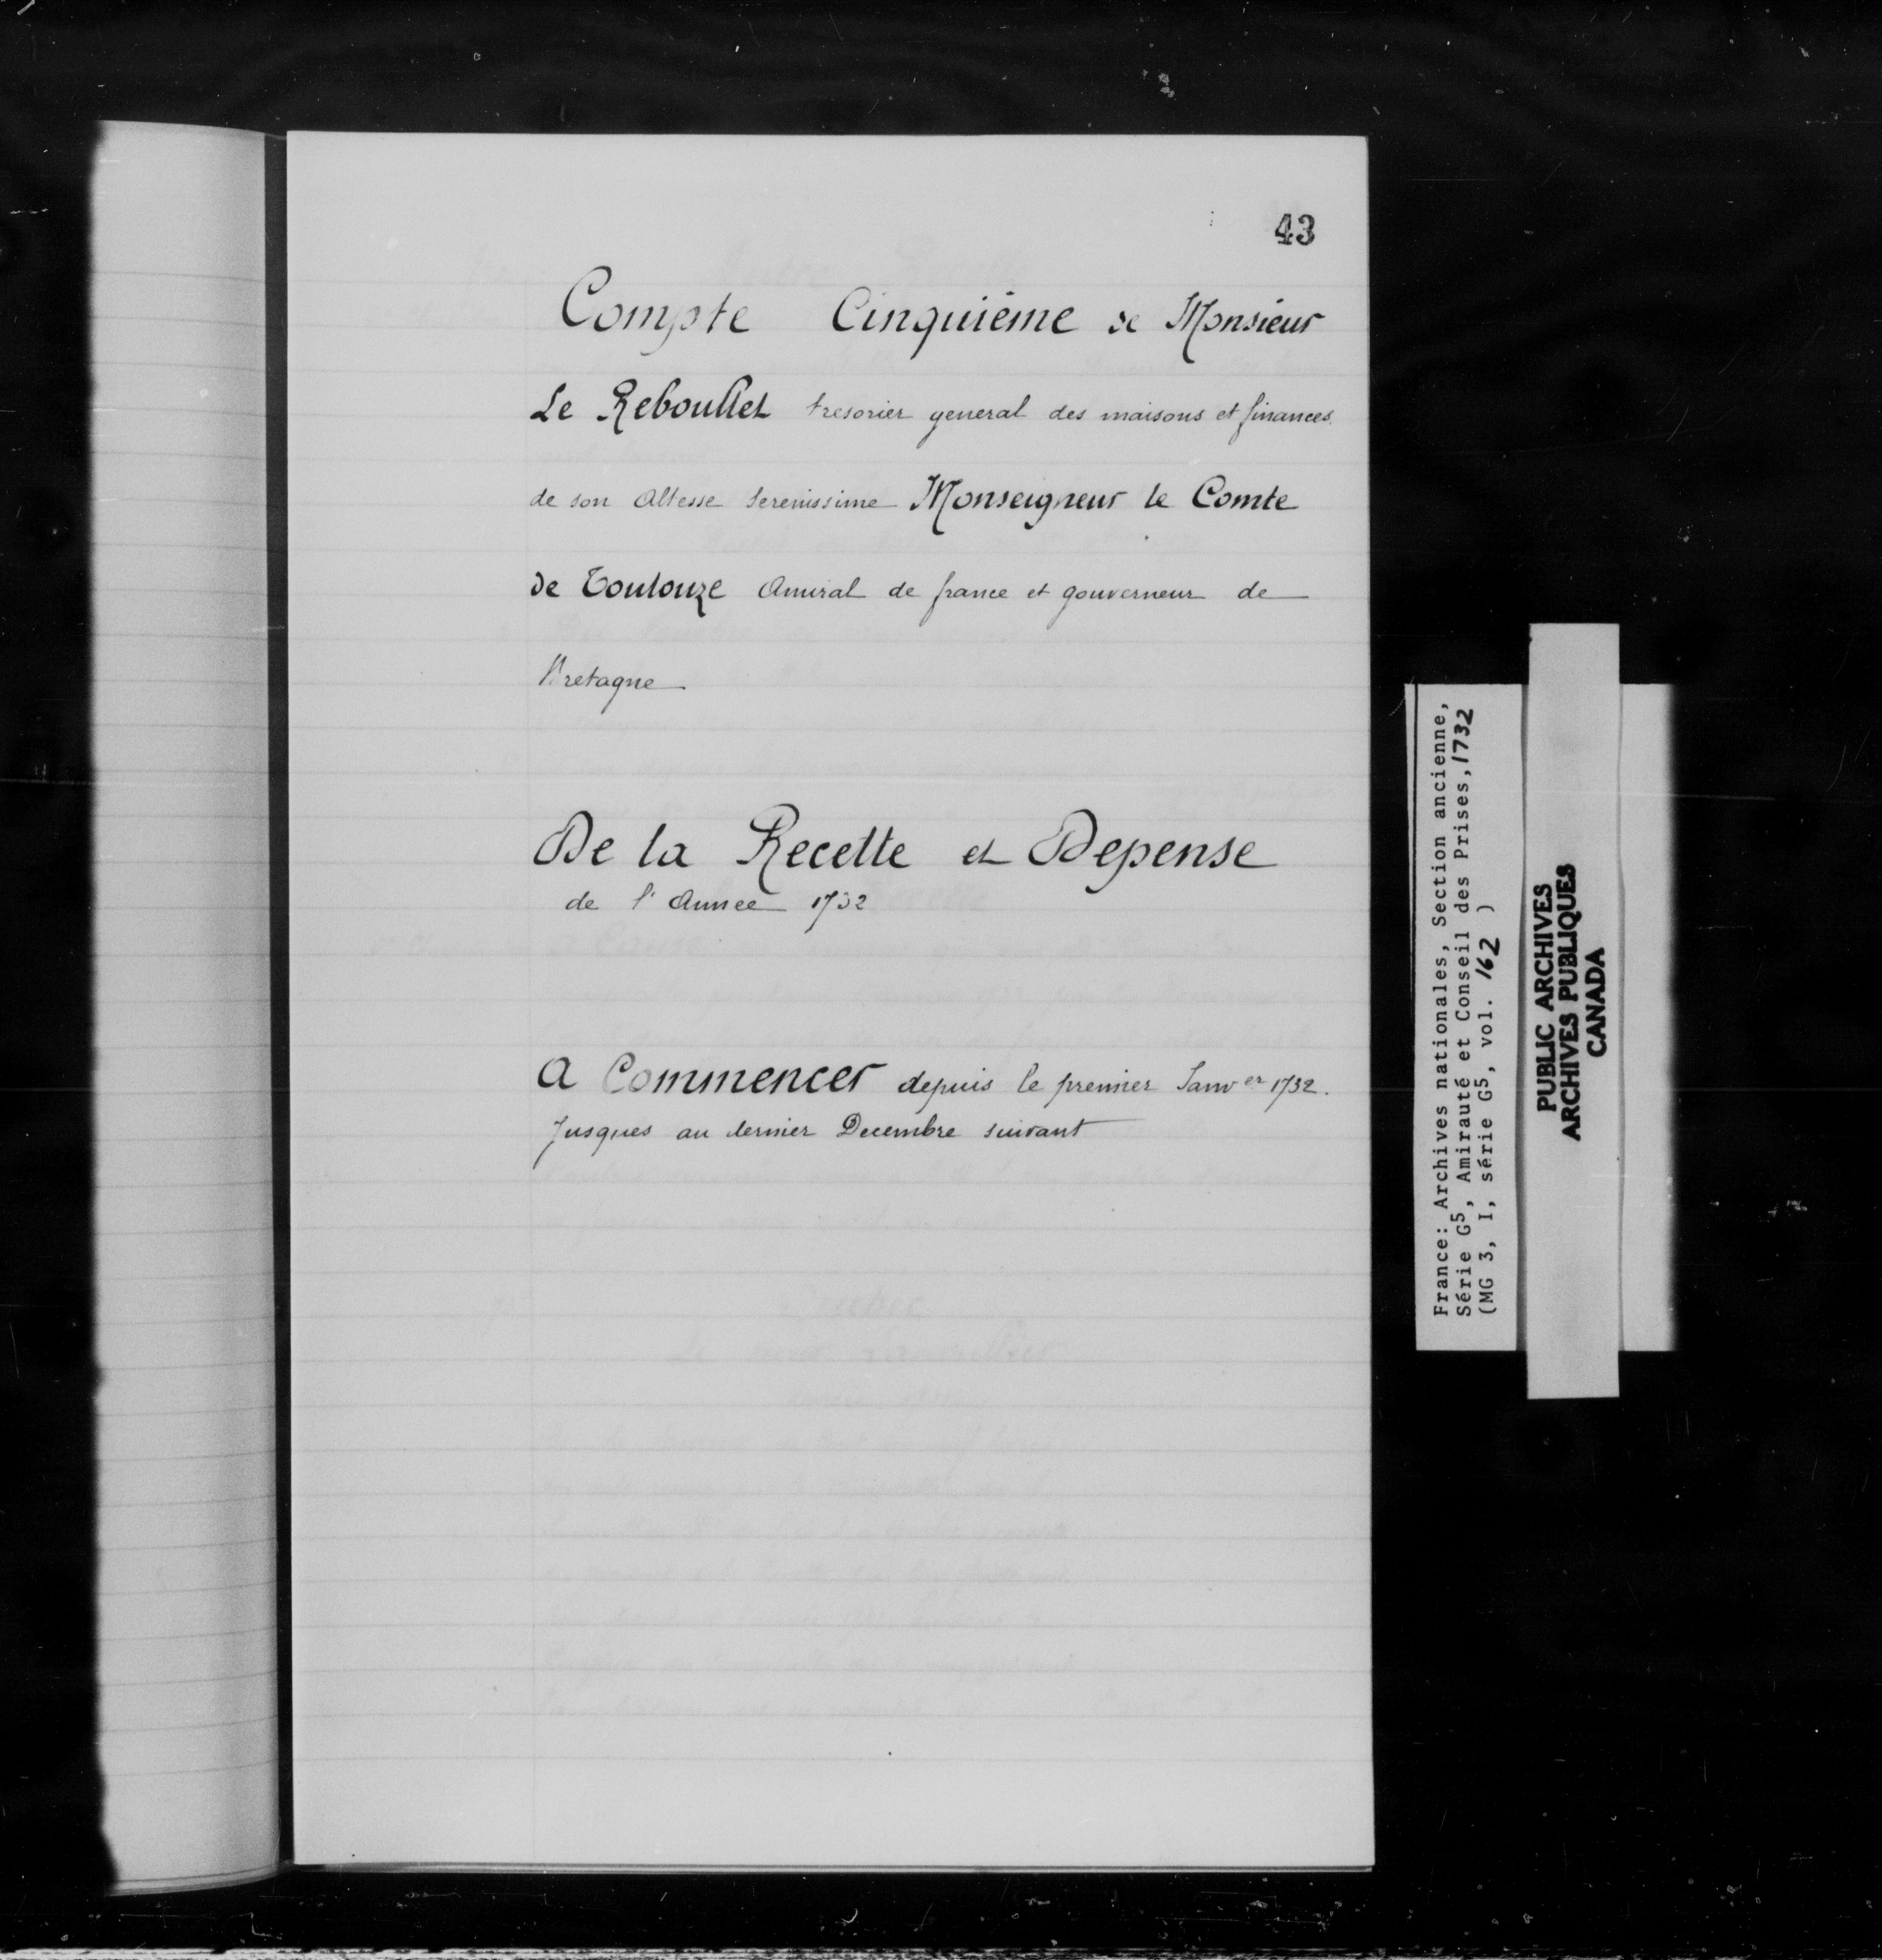 43
Compte Cinquième de Monsieur
Le Reboullet tresorier general des maisons et finances
de son Altesse Serenissime Monseigneur le Comte
de Toulouze Amiral de france et gouverneur de
Bretagne
De la Recette et Depense
de l'Annee 1732
A Commencer depuis le premier Janv er 1732.
Jusques au dernier Decembre suivant
France: Archives nationales, Section ancienne,
Série G5, Amirauté et Conseil des Prises, 1732
(MG 3, I, série G5, vol. 162 )
PUBLIC ARCHIVES
ARCHIVES PUBLIQUES
CANADA